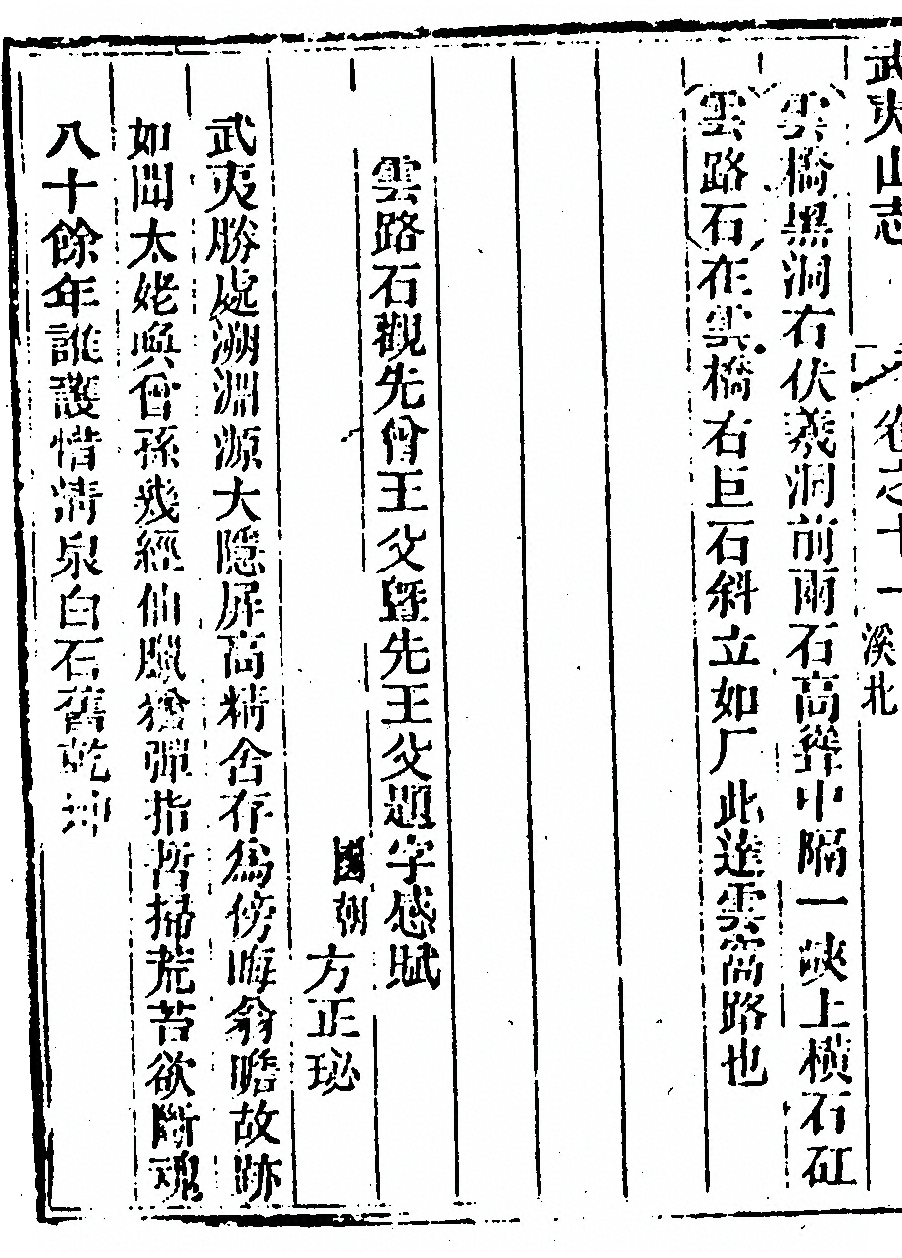 武夷山志 卷之十一 溪北
雲橋黑洞右伏羲洞前兩石高聳中隔一峽上橫石矼
雲路石在雲橋右巨石斜立如厂此達雲窩路也
雲路石觀先曾王父曁先王父題字感賦
國朝方正玭
武夷勝處溯淵源大隱屏高精舍存為傍晦翁瞻故跡
如聞太姥喚曾孫幾經仙臘猶彈指暫掃荒苔欲斷魂
八十餘年誰護惜清泉白石舊乾坤